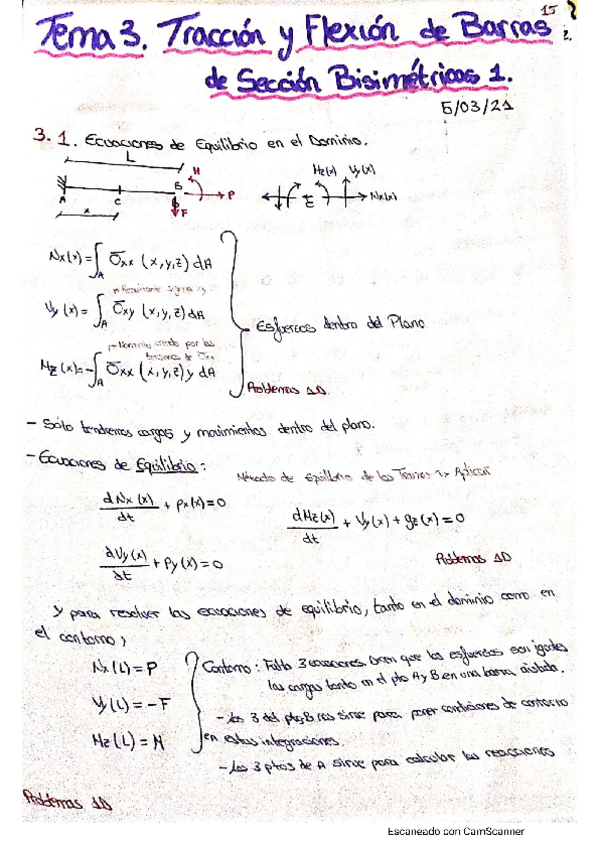 15
Tema 3. Tracción y Flexión de Barras
de Sección Bisimétricas 1.
5/03/21
3.1. Ecuaciones de Equilibrio en el Dominio.
L
A C B M P F
x
Mz(x) Vy(x)
Nx(x)
Nx(x) = ∫A σxx (x,y,z) dA
Vy(x) = ∫A σxy (x,y,z) dA
Momento creado por las
tensiones de σxx
Mz(x) = -∫A σxx (x,y,z) y dA
Esfuerzos dentro del Plano
Problemas 1D.
- Sólo tendremos cargas y movimientos dentro del plano.
- Ecuaciones de Equilibrio:
Método de Equilibrio de las
dNx(x)/dt + px(x) = 0
dMz(x)/dt + Vy(x) + gz(x) = 0
dVy(x)/dt + Py(x) = 0
Problemas 1D
Y para resolver las ecuaciones de equilibrio, tanto en el dominio como en
el contorno,
Nx(L) = P
Vy(L) = -F
Mz(L) = M
Contorno: Falta 3 ecuaciones. Dicen que los esfuerzos son iguales
las cargas tanto en el pto A y B en una barra aislada.
- Las 3 del pto B nos sirve para poner condiciones de contorno
en estas integraciones.
- Las 3 ptos de A sirve para calcular las reacciones
Problemas 1D
Escaneado con CamScanner